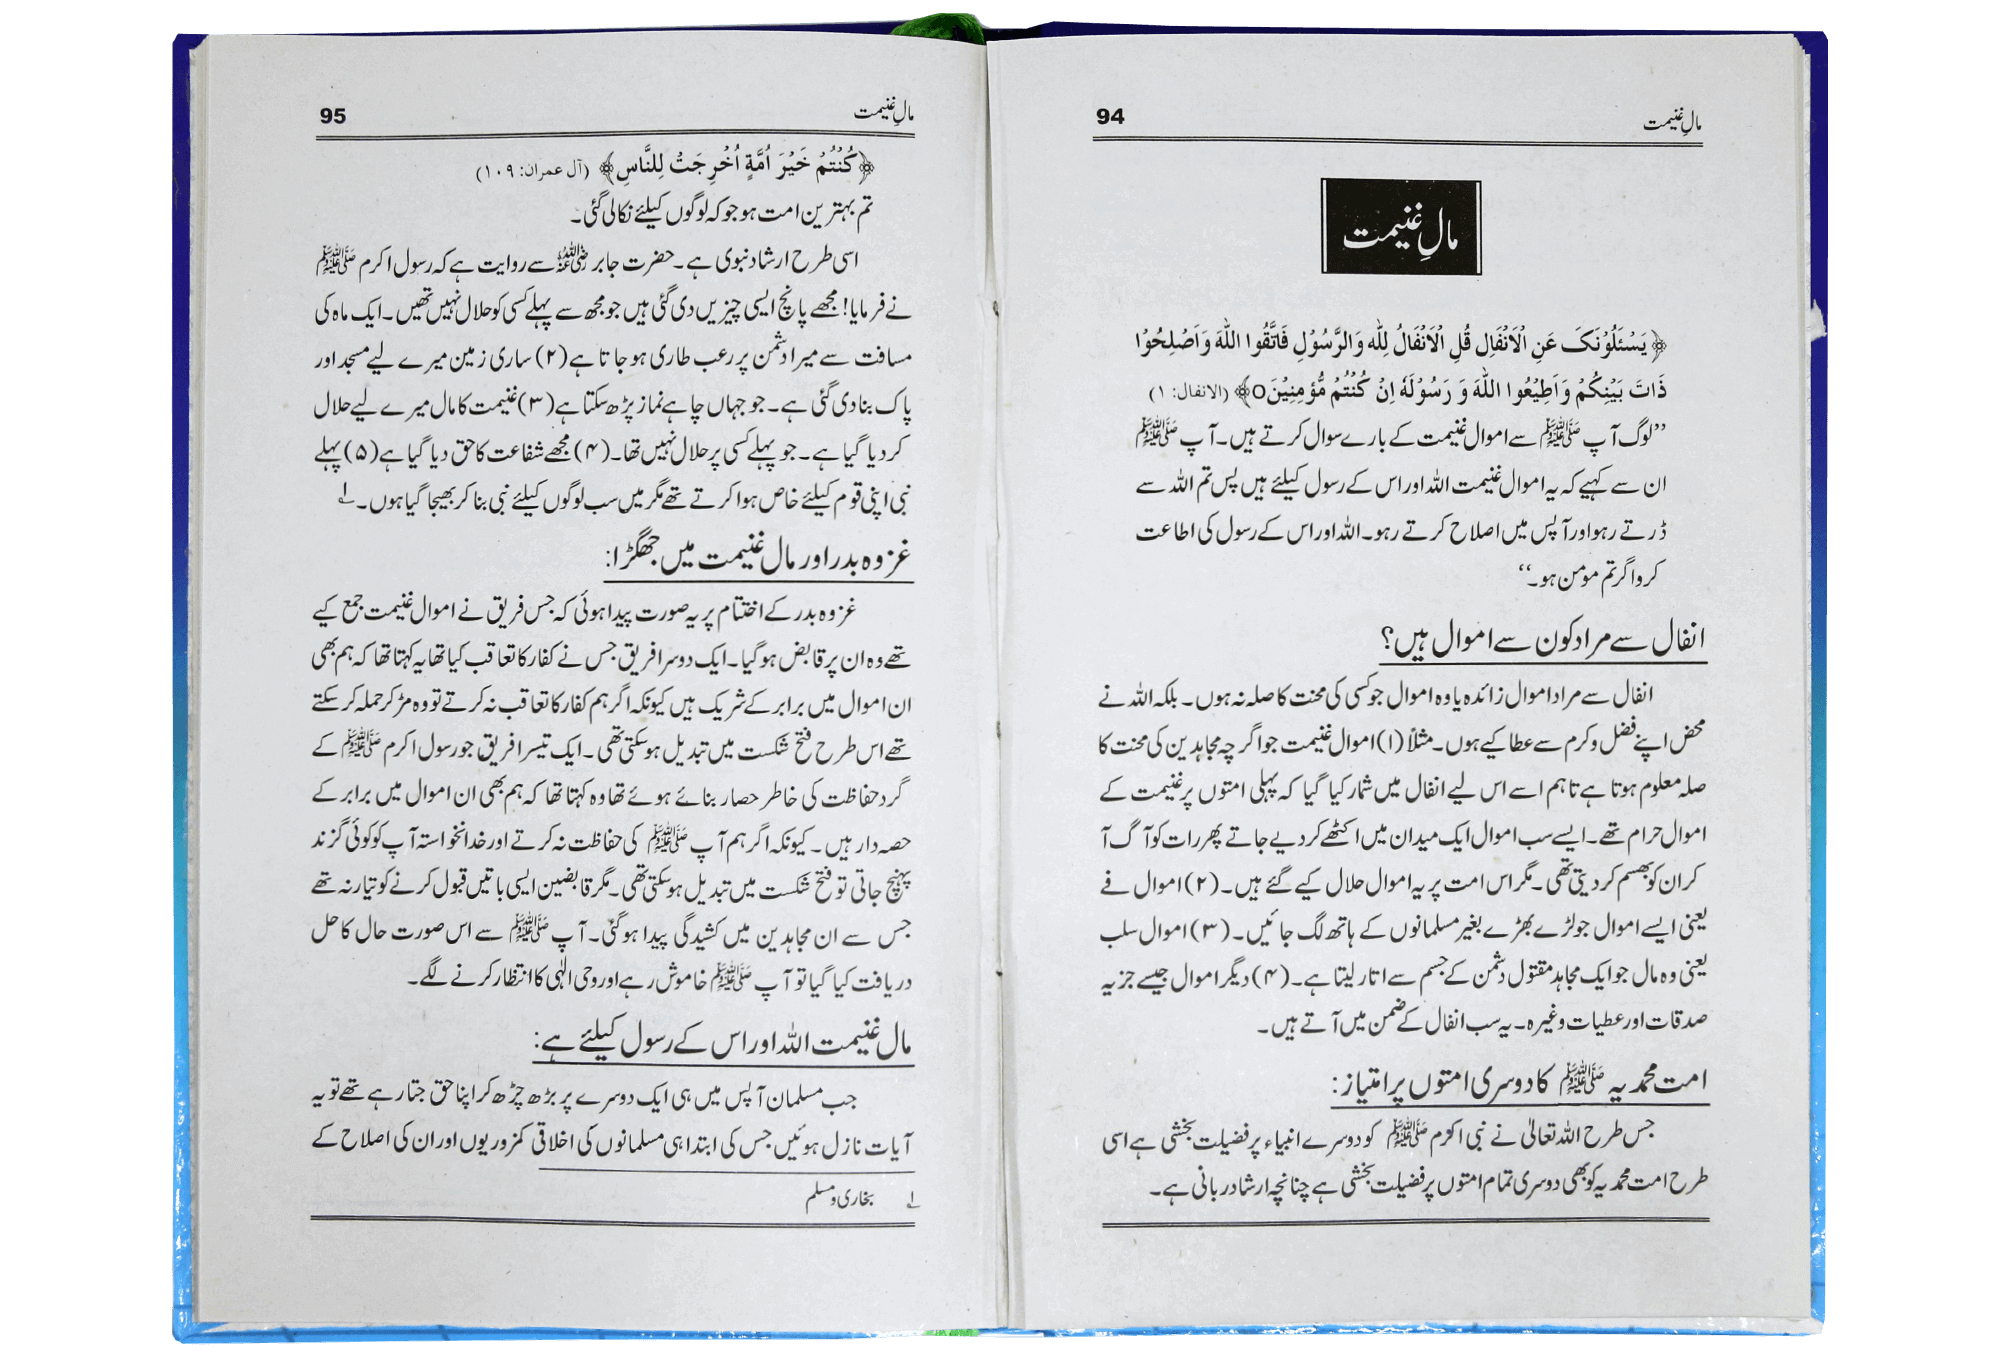 مالِ غنیمت
94
مالِ غنیمت
﴿یَسْئَلُوْنَکَ عَنِ الْاَنْفَالِ قُلِ الْاَنْفَالُ لِلّٰہِ وَالرَّسُوْلِ فَاتَّقُوا اللّٰہَ وَاَصْلِحُوْا
ذَاتَ بَیْنِکُمْ وَاَطِیْعُوا اللّٰہَ وَ رَسُوْلَہٗ اِنْ کُنْتُمْ مُّؤمِنِیْنَO﴾ (الانفال: ۱)
’’لوگ آپ ﷺ سے اموال غنیمت کے بارے سوال کرتے ہیں۔ آپ ﷺ
ان سے کہیے کہ یہ اموال غنیمت اللہ اور اس کے رسول کیلئے ہیں پس تم اللہ سے
ڈرتے رہو اور آپس میں اصلاح کرتے رہو۔ اللہ اور اس کے رسول کی اطاعت
کرو اگر تم مومن ہو۔‘‘
انفال سے مراد کون سے اموال ہیں؟
انفال سے مراد اموال زائدہ یا وہ اموال جو کسی کی محنت کا صلہ نہ ہوں۔ بلکہ اللہ نے
محض اپنے فضل و کرم سے عطا کیے ہوں۔ مثلاً (۱) اموال غنیمت جو اگرچہ مجاہدین کی محنت کا
صلہ معلوم ہوتا ہے تاہم اسے اس لیے انفال میں شمار کیا گیا کہ پہلی امتوں پر غنیمت کے
اموال حرام تھے۔ ایسے سب اموال ایک میدان میں اکٹھے کر دیے جاتے پھر رات کو آگ آ
کر ان کو بھسم کر دیتی تھی۔ مگر اس امت پر یہ اموال حلال کیے گئے ہیں۔ (۲) اموال فے
یعنی ایسے اموال جو لڑے بھڑے بغیر مسلمانوں کے ہاتھ لگ جائیں۔ (۳) اموال سلب
یعنی وہ مال جو ایک مجاہد مقتول دشمن کے جسم سے اتار لیتا ہے۔ (۴) دیگر اموال جیسے جزیہ
صدقات اور عطیات وغیرہ۔ یہ سب انفال کے ضمن میں آتے ہیں۔
امت محمدیہ ﷺ کا دوسری امتوں پر امتیاز:
جس طرح اللہ تعالیٰ نے نبی اکرم ﷺ کو دوسرے انبیاء پر فضیلت بخشی ہے اسی
طرح امت محمدیہ کو بھی دوسری تمام امتوں پر فضیلت بخشی ہے چنانچہ ارشاد ربانی ہے۔
مالِ غنیمت
95
﴿کُنْتُمْ خَیْرَ اُمَّةٍ اُخْرِجَتْ لِلنَّاسِ﴾ (آل عمران: ۱۰۹)
تم بہترین امت ہو جو کہ لوگوں کیلئے نکالی گئی۔
اسی طرح ارشاد نبوی ہے۔ حضرت جابر رضی اللہ عنہ سے روایت ہے کہ رسول اکرم ﷺ
نے فرمایا! مجھے پانچ ایسی چیزیں دی گئی ہیں جو مجھ سے پہلے کسی کو حلال نہیں تھیں۔ ایک ماہ کی
مسافت سے میرا دشمن پر رعب طاری ہو جاتا ہے (۲) ساری زمین میرے لیے مسجد اور
پاک بنا دی گئی ہے۔ جو جہاں چاہے نماز پڑھ سکتا ہے (۳) غنیمت کا مال میرے لیے حلال
کر دیا گیا ہے۔ جو پہلے کسی پر حلال نہیں تھا۔ (۴) مجھے شفاعت کا حق دیا گیا ہے (۵) پہلے
نبی اپنی قوم کیلئے خاص ہوا کرتے تھے مگر میں سب لوگوں کیلئے نبی بنا کر بھیجا گیا ہوں۔ ۱
غزوہ بدر اور مال غنیمت میں جھگڑا:
غزوہ بدر کے اختتام پر یہ صورت پیدا ہوئی کہ جس فریق نے اموال غنیمت جمع کیے
تھے وہ ان پر قابض ہو گیا۔ ایک دوسرا فریق جس نے کفار کا تعاقب کیا تھا یہ کہتا تھا کہ ہم بھی
ان اموال میں برابر کے شریک ہیں کیونکہ اگر ہم کفار کا تعاقب نہ کرتے تو وہ مڑ کر حملہ کر سکتے
تھے اس طرح فتح شکست میں تبدیل ہو سکتی تھی۔ ایک تیسرا فریق جو رسول اکرم ﷺ کے
گرد حفاظت کی خاطر حصار بنائے ہوئے تھا وہ کہتا تھا کہ ہم بھی ان اموال میں برابر کے
حصہ دار ہیں۔ کیونکہ اگر ہم آپ ﷺ کی حفاظت نہ کرتے اور خدانخواستہ آپ کو کوئی گزند
پہنچ جاتی تو فتح شکست میں تبدیل ہو سکتی تھی۔ مگر قابضین ایسی باتیں قبول کرنے کو تیار نہ تھے
جس سے ان مجاہدین میں کشیدگی پیدا ہو گئی۔ آپ ﷺ سے اس صورت حال کا حل
دریافت کیا گیا تو آپ ﷺ خاموش رہے اور وحی الٰہی کا انتظار کرنے لگے۔
مال غنیمت اللہ اور اس کے رسول کیلئے ہے:
جب مسلمان آپس میں ہی ایک دوسرے پر بڑھ چڑھ کر اپنا حق جتا رہے تھے تو یہ
آیات نازل ہوئیں جس کی ابتدا ہی مسلمانوں کی اخلاقی کمزوریوں اور ان کی اصلاح کے
۱ بخاری و مسلم